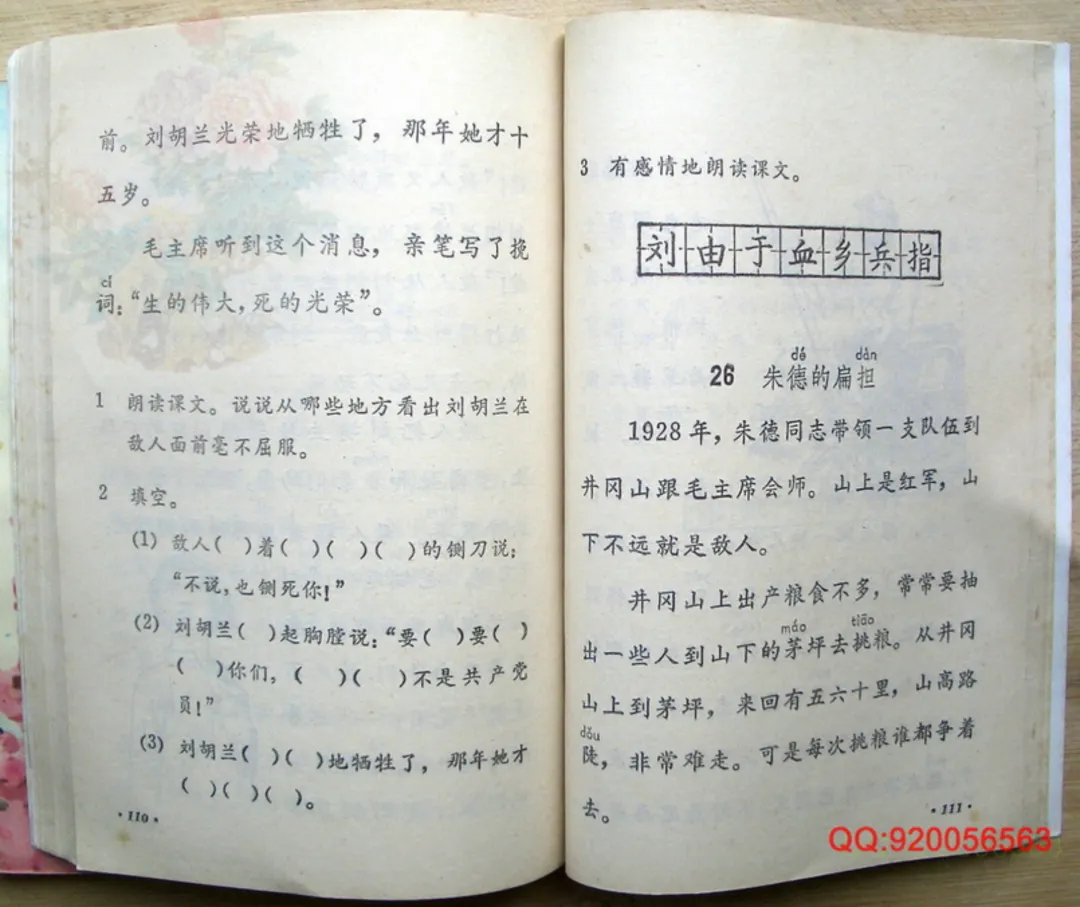 前。刘胡兰光荣地牺牲了，那年她才十
五岁。
毛主席听到这个消息，亲笔写了挽
cí
词：“生的伟大，死的光荣”。
1 朗读课文。说说从哪些地方看出刘胡兰在
敌人面前毫不屈服。
2 填空。
(1) 敌人( )着( )( )( )的铡刀说：
“不说，也铡死你！”
(2) 刘胡兰( )起胸膛说：“要( )要( )
( )你们，( )( )不是共产党
员！”
(3) 刘胡兰( )( )地牺牲了，那年她才
( )( )( )。
·110·
3 有感情地朗读课文。
刘由于血乡兵指
dé dàn
26 朱德的扁担
1928年，朱德同志带领一支队伍到
井冈山跟毛主席会师。山上是红军，山
下不远就是敌人。
井冈山上出产粮食不多，常常要抽
máo tiāo
出一些人到山下的茅坪去挑粮。从井冈
山上到茅坪，来回有五六十里，山高路
dǒu
陡，非常难走。可是每次挑粮谁都争着
去。
·111·
QQ:920056563